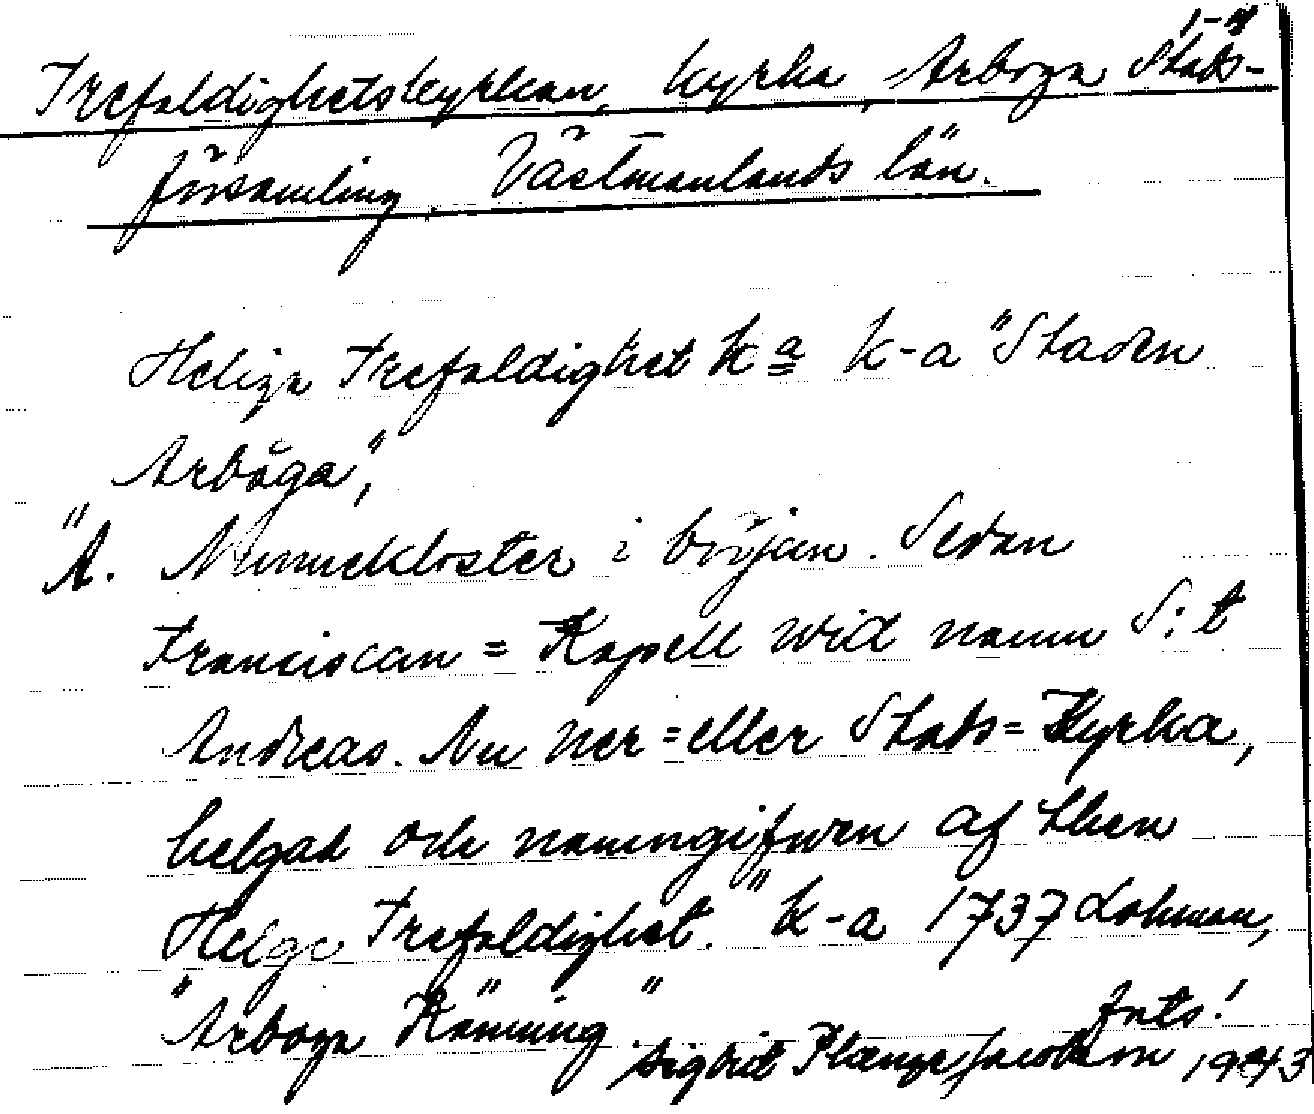 1-4
Trefaldighetskyrkan, kyrka, Arboga Stads-
församling, Västmanlands län.
Heliga Trefaldighet K:a k-a "Staden
Arboga",
"A. Munckloster i början. Sedan
Franciscan = Kapell wid namn S:t
Andreas. Nu ner = eller Stads = Kyrka,
helgad och namngifwen af then
Helge Trefaldighet." k-a 1737 Lohman,
"Arboga Känning"
forts!
Sigrid Jacobson 1943